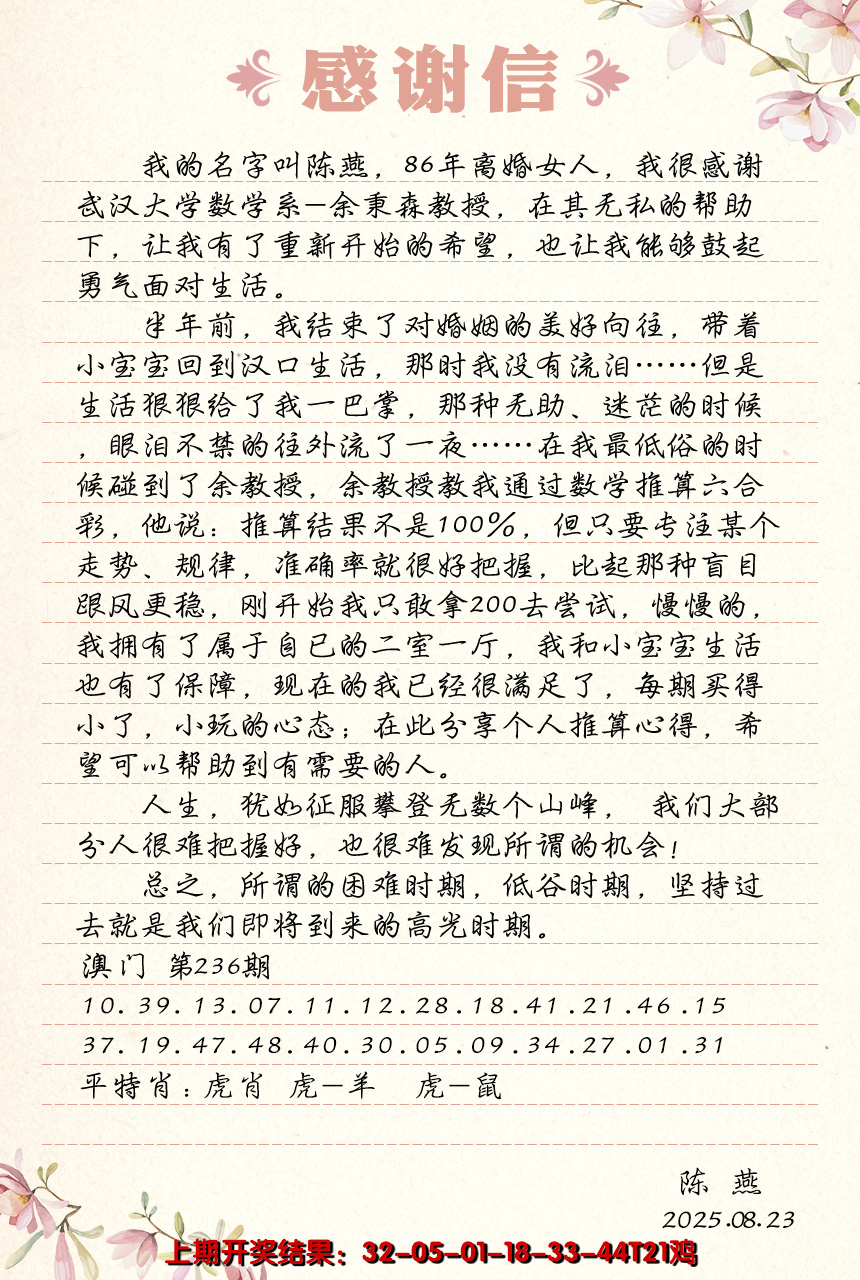 感谢信
我的名字叫陈燕，86年离婚女人，我很感谢
武汉大学数学系—余秉森教授，在其无私的帮助
下，让我有了重新开始的希望，也让我能够鼓起
勇气面对生活。
半年前，我结束了对婚姻的美好向往，带着
小宝宝回到汉口生活，那时我没有流泪……但是
生活狠狠给了我一巴掌，那种无助、迷茫的时候
，眼泪不禁的往外流了一夜……在我最低俗的时
候碰到了余教授，余教授教我通过数学推算六合
彩，他说：推算结果不是100%，但只要专注某个
走势、规律，准确率就很好把握，比起那种盲目
跟风更稳，刚开始我只敢拿200去尝试，慢慢的，
我拥有了属于自已的二室一厅，我和小宝宝生活
也有了保障，现在的我已经很满足了，每期买得
小了，小玩的心态；在此分享个人推算心得，希
望可以帮助到有需要的人。
人生，犹如征服攀登无数个山峰， 我们大部
分人很难把握好，也很难发现所谓的机会！
总之，所谓的困难时期，低谷时期，坚持过
去就是我们即将到来的高光时期。
澳门 第236期
10.39.13.07.11.12.28.18.41.21.46.15
37.19.47.48.40.30.05.09.34.27.01.31
平特肖：虎肖 虎—羊 虎—鼠
陈 燕
2025.08.23
上期开奖结果：32-05-01-18-33-44T21鸡